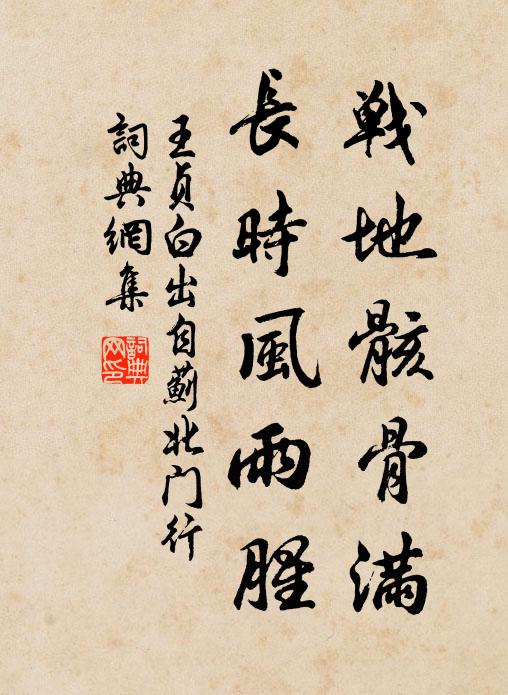 戦地骸骨満
長時風雨腥
王貞白出自薊北门行
詞典網集
詞典网印